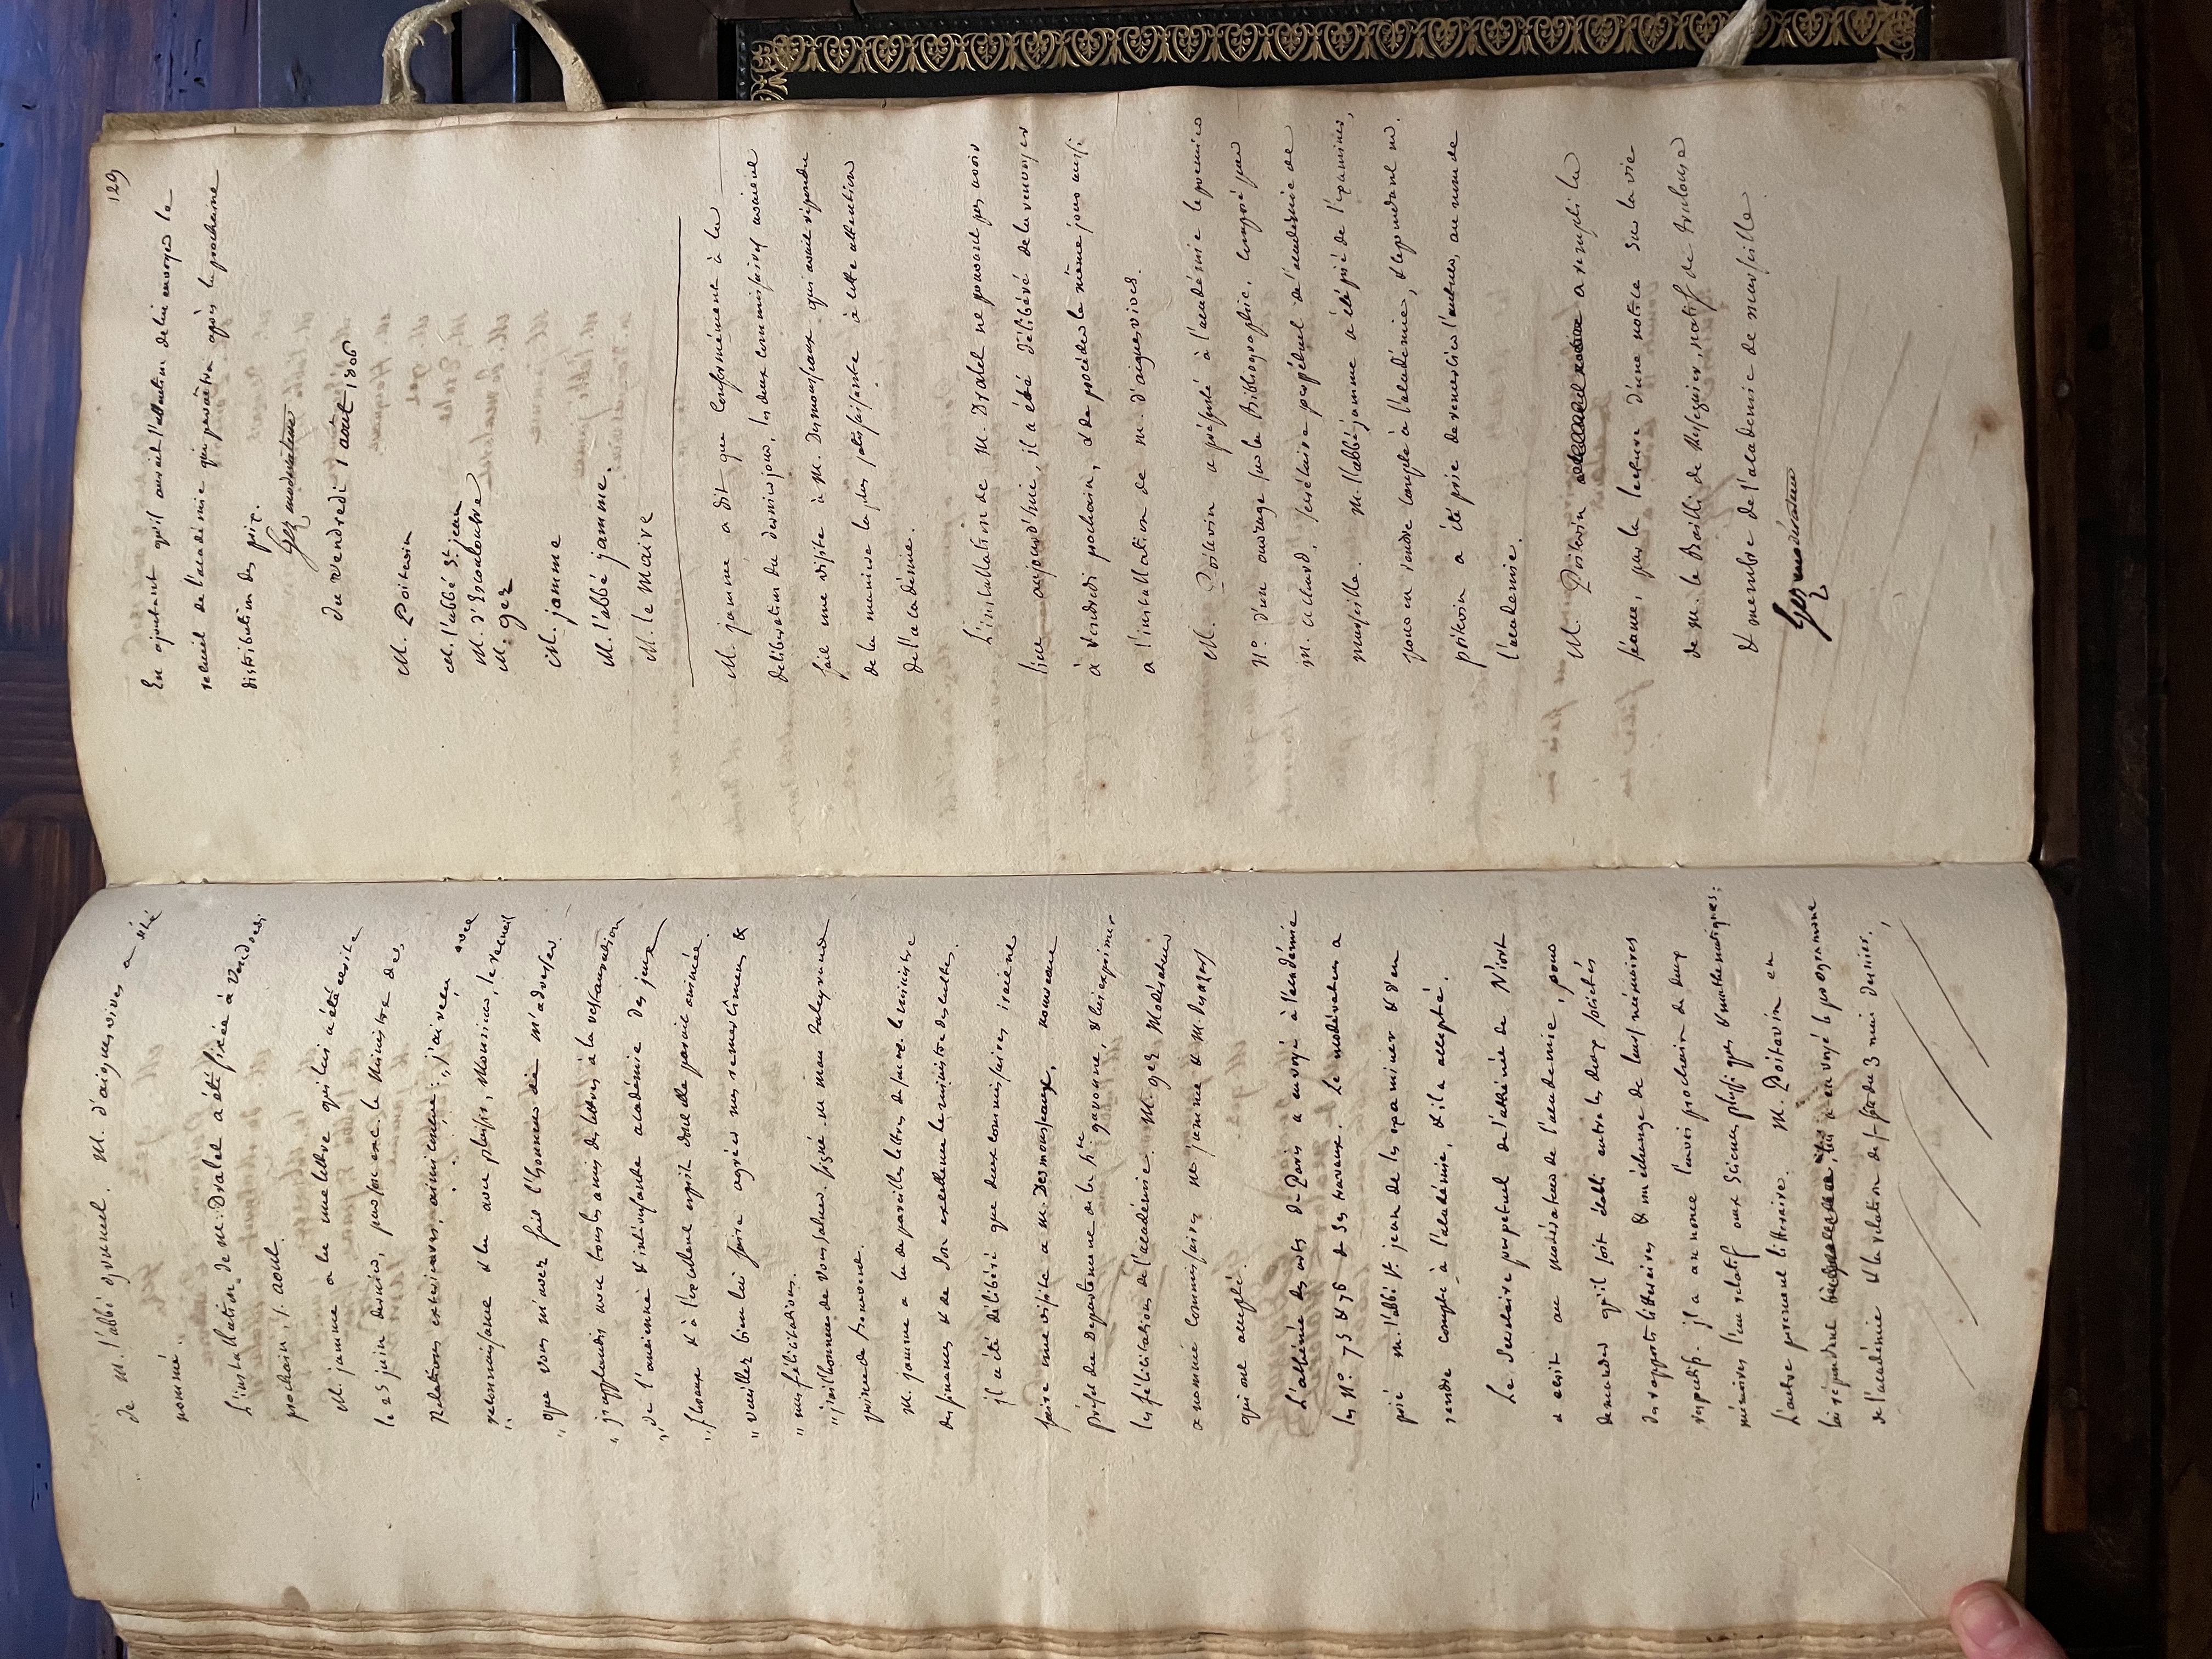 de M. l'abbé granuel. M. d'aiguesvives a été
nommé.
L'installation de M. Dralet a été fixée à Vendredi
prochain 1er. aout.
M. jamme a lu une lettre qui lui a été écrite
le 25 juin dernier, par son exc. le Ministre des
Relations extérieures, ainsi conçue: j'ai reçu avec
" reconnaissance & lu avec plaisir, Monsieur, le recueil
" que vous m'avez fait l'honneur de m'adresser.
" j'applaudis avec tous les amis des lettres à la restauration
" de l'ancienne & intéressante académie des jeux
" floraux & à l'excellent esprit dont elle parait animée.
" veuillez bien lui faire agréer mes remercîmens &
" mes félicitations.
" j'ai l'honneur de vous saluer. signé. m. mau Taleyrand
prince de benevent.
M. jamme a lu de pareilles lettres de son exc. le ministre
des finances & de son excellence le ministre des cultes.
il a été délibéré que deux commissaires iraient
faire une visite à M. Desmousseaux, nouveau
préfet du Département de la hte. garonne, & lui exprimer
les félicitations de l'académie. M. gez Modérateur
a nommé commissaires M. jamme & M. Desazars
qui ont accepté.
L'athénée des arts de Paris a envoyé à l'académie
les Nos. 75 & 76 de ses travaux. Le modérateur a
prié M. l'abbé St. jean de les examiner & d'en
rendre compte à l'académie, & il a accepté.
Le Secrétaire perpétuel de l'athénée de Niort
a écrit au modérateur de l'académie, pour
demander qu'il soit établi entre les deux sociétés
des rapports littéraires & un échange de leurs mémoires
respectifs. il a annoncé l'envoi prochain de deux
mémoires l'un relatif aux Sciences physiques & mathématiques:
L'autre purement littéraire. M. Poitevin en
lui répondant lui a envoyé le programme
de l'académie & la relation de la fête du 3 mai dernier.
129
En ajoutant qu'il aurait l'attention de lui envoyer le
recueil de l'académie qui paraîtra après la prochaine
distribution des prix.
Gez modérateur
du Vendredi 1 août 1806
M. Poitevin
M. l'abbé St. jean
M. d'Escouloubre
M. gez
M. jamme
M. l'abbé jamme.
M. le Maire
M. jamme a dit que conformément à la
délibération du dernier jour, les deux commissaires avaient
fait une visite à M. Desmousseaux qui avait répondu
de la manière la plus satisfaisante à cette attention
de l'académie.
L'installation de M. Dralet ne pouvant pas avoir
lieu aujourd'hui, il a été délibéré de la renvoyer
à Vendredi prochain, & de procéder le même jour aussi
à l'installation de M. d'aiguesvives.
M. Poitevin a présenté à l'académie le premier
No. d'un ouvrage sur la Bibliographie, composé par
M. achard, secrétaire perpétuel de l'académie de
marseille. M. l'abbé jamme a été prié de l'examiner,
pour en rendre compte à l'académie, & cependant M.
poitevin a été prié de remercier l'auteur, au nom de
l'académie.
M. Poitevin a rempli la
séance, par la lecture d'une notice sur la vie
de M. le Bailli de Resseguier, natif de toulouse
& membre de l'académie de marseille
Gez modérateur